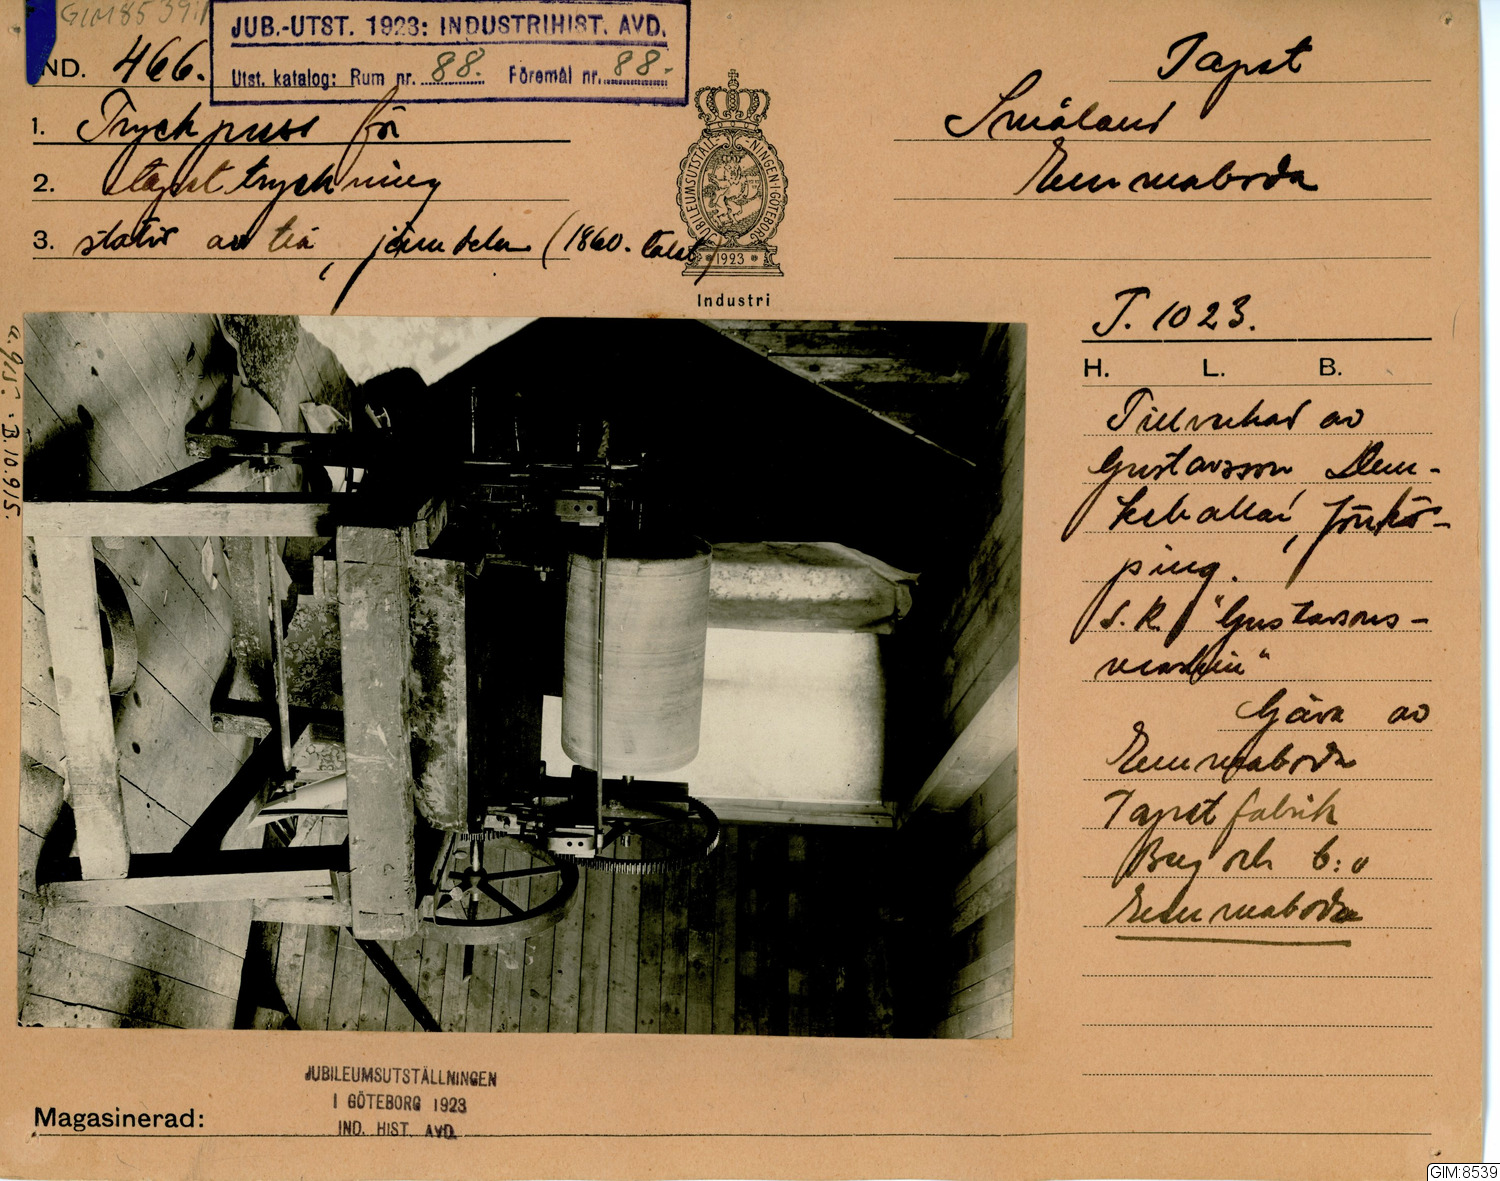 GIM 8539:1
JUB.-UTST. 1923: INDUSTRIHIST. AVD.
Utst. katalog: Rum nr. 88. Föremål nr. 88.
IND. 466.
1. Tryckpress för
2. tapettryckning
3. stativ av trä, järndelar (1860-talet)
JUBILEUMSUTSTÄLLNINGEN I GÖTEBORG
1923
Industri
Tapet
Småland
Emmaboda
T. 1023.
H. L. B.
Tillverkad av
Gustavsson
Jönkö-
ping.
s.k. "Gustavsons-
maskin"
Gåva av
Emmaboda
Tapetfabrik
Berg och C:o
Emmaboda
a. 915. - B. 10.915.
JUBILEUMSUTSTÄLLNINGEN
I GÖTEBORG 1923
IND. HIST. AVD.
Magasinerad:
GIM:8539